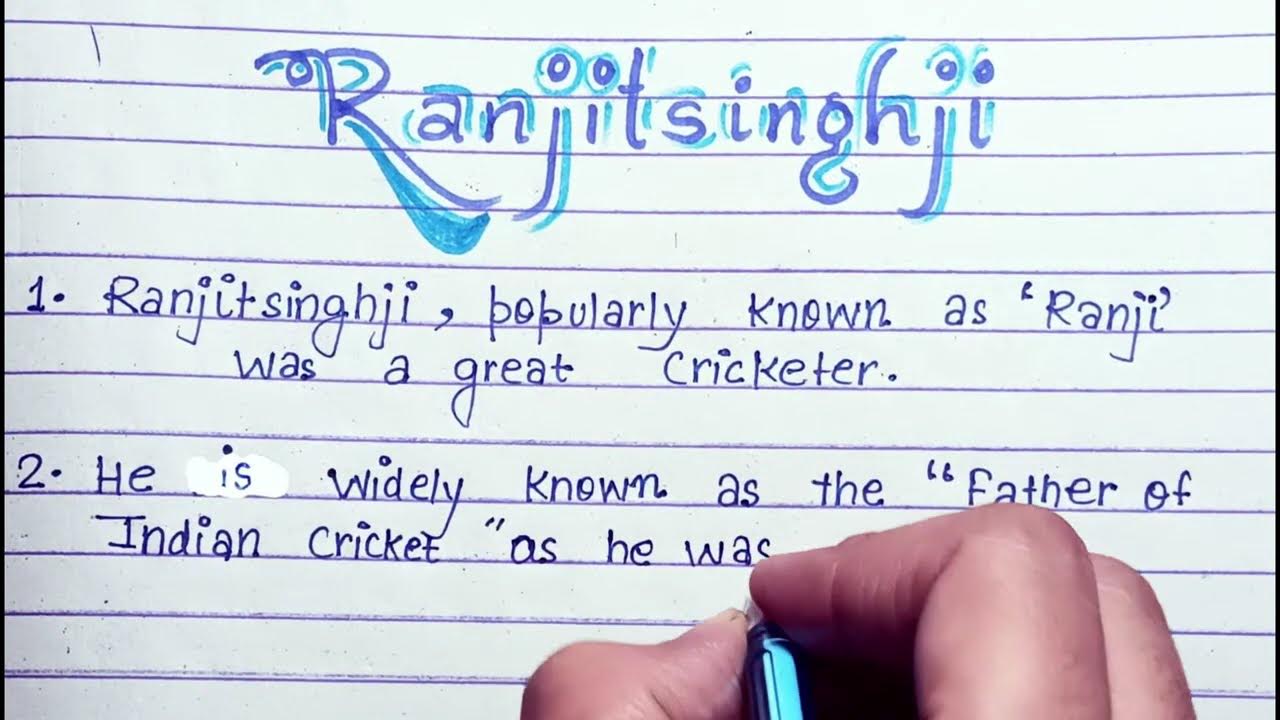 Ranjitsinghji
1. Ranjitsinghji, popularly known as 'Ranji'
was a great cricketer.
2. He is widely known as the "Father of
Indian cricket "as he was